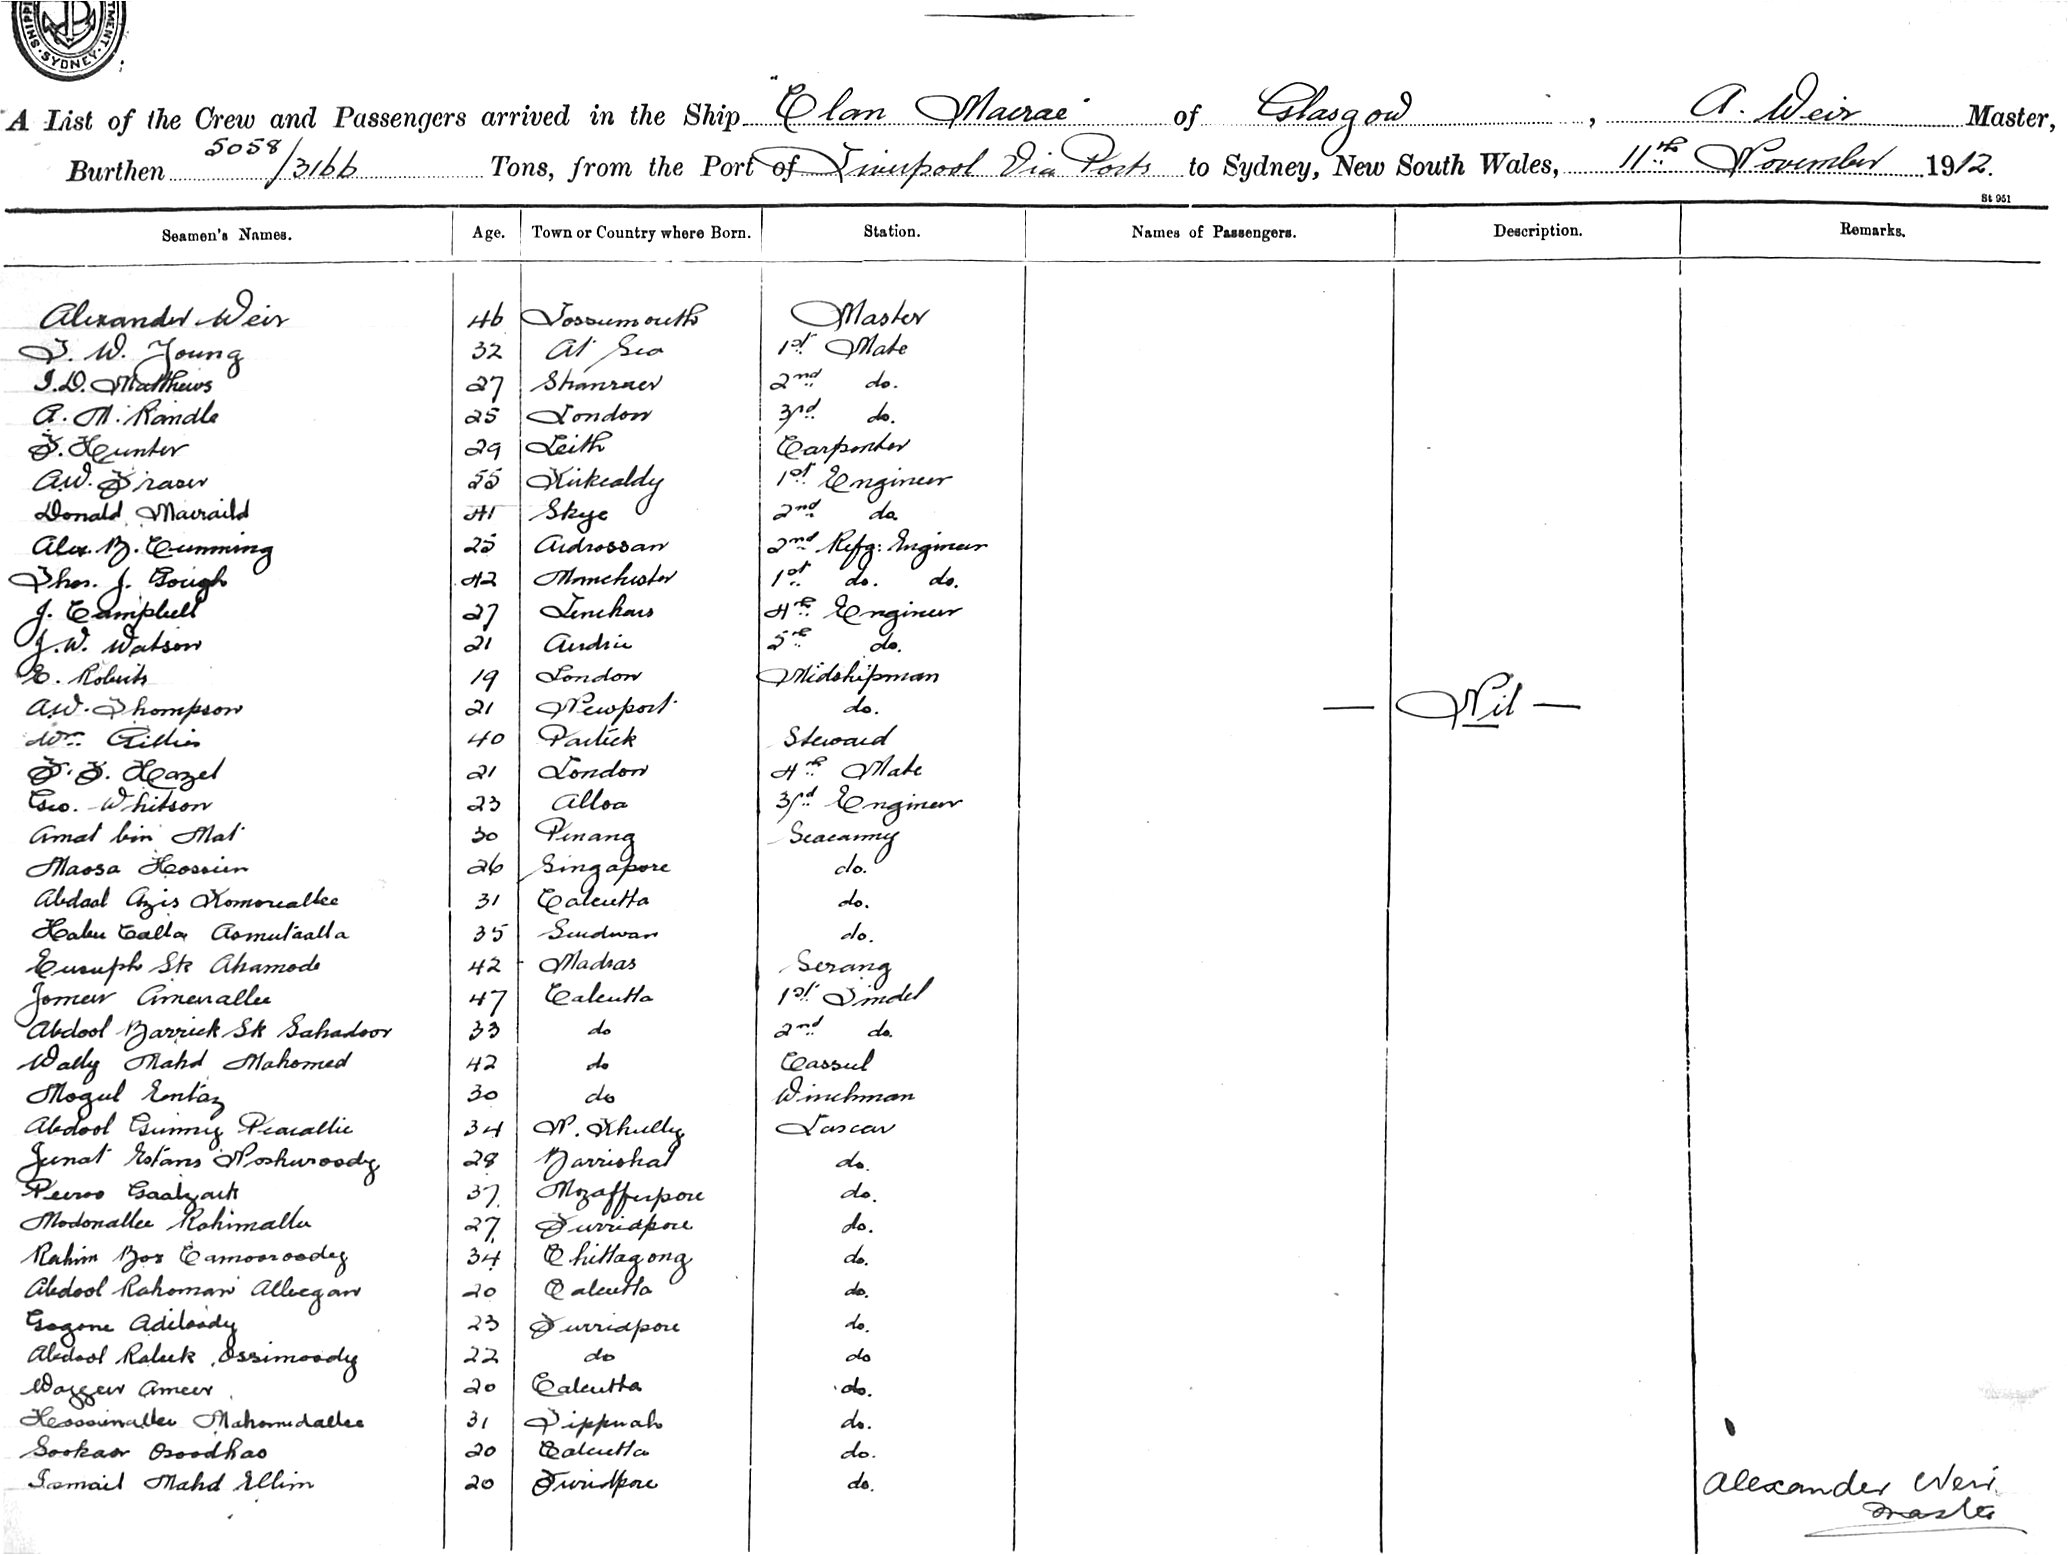 SHIPPI TMENT. SYDNEY.
A List of the Crew and Passengers arrived in the Ship "Clan Macrae" of Glasgow, A. Weir Master,
Burthen 5058/3166 Tons, from the Port of Liverpool Via Ports to Sydney, New South Wales, 11th November 1912.
St 951
Seamen's Names. Age. Town or Country where Born. Station. Names of Passengers. Description. Remarks.
Alexander Weir 46 Lossiemouth Master
T. W. Young 32 At Sea 1st Mate
I. D. Matthews 27 Stranraer 2nd do.
A. M. Randle 25 London 3rd do.
F. Hunter 29 Leith Carpenter
A.W. Fraser 55 Kirkcaldy 1st Engineer
Donald Macraild 41 Skye 2nd do.
Alex. B. Cumming 25 Ardrossan 2nd Refg: Engineer
Thos. J. Gough 42 Manchester 1st do. do.
J. Campbell 27 4th Engineer
J. W. Watson 21 Airdrie 5th do.
E. Roberts 19 London Midshipman
A.W. Thompson 21 Newport do.
Wm. Gillies 40 Partick Steward
— Nil —
F. F. Hazel 21 London 4th Mate
Geo. Whitson 23 Alloa 3rd Engineer
Amat bin Mat 30 Penang Seacunny
Moosa Hossein 26 Singapore do.
Abdool Azis Komorallee 31 Calcutta do.
35 do.
Eusuph Sk Ahamode 42 Madras Serang
Jomeir Amerallee 47 Calcutta 1st Tindel
Abdool Barrick Sk Bahadoor 33 do 2nd do.
Wally Mahd Mahomed 42 do Cassul
Mogul Emtaz 30 do Winchman
Abdool Gunny Pearallie 34 N. Khully Lascar
Junat 28 Barrishal do.
37 Mozafferpore do.
Modonallee Rohimallee 27 Furridpore do.
Rahim Box Camooroodey 34 Chittagong do.
Abdool Rahoman Alleegan 20 Calcutta do.
Gogone Adiloody 23 Furridpore do.
Abdool Ossimoody 22 do do
Wazzeer Ameer 20 Calcutta do.
Hossinallee Mahomedallee 31 Tipperah do.
Sookaor Boodhao 20 Calcutta do.
Ismail Mahd Ellim 20 Furridpore do.
Alexander Weir.
Master